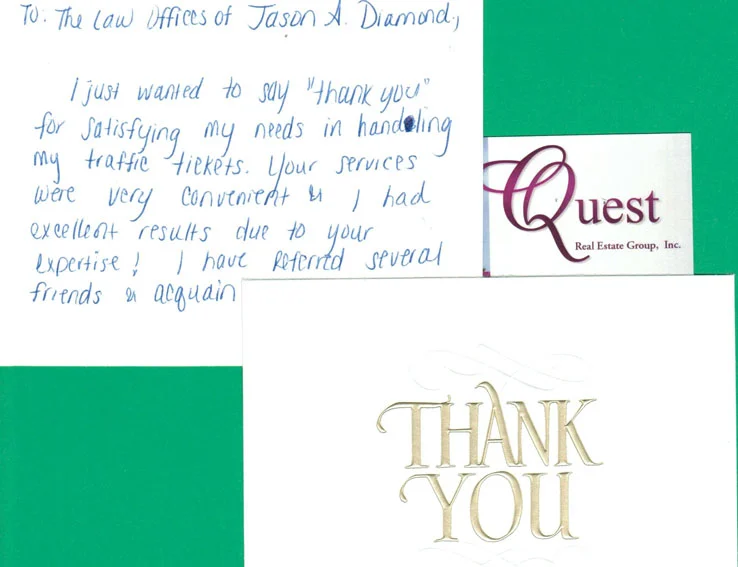 To: The Law Offices of Jason A. Diamond,
I just wanted to say "thank you"
for satisfying my needs in handling
my traffic tickets. Your services
were very convenient & I had
excellent results due to your
expertise! I have referred several
friends & acquain
Quest
Real Estate Group, Inc.
THANK
YOU